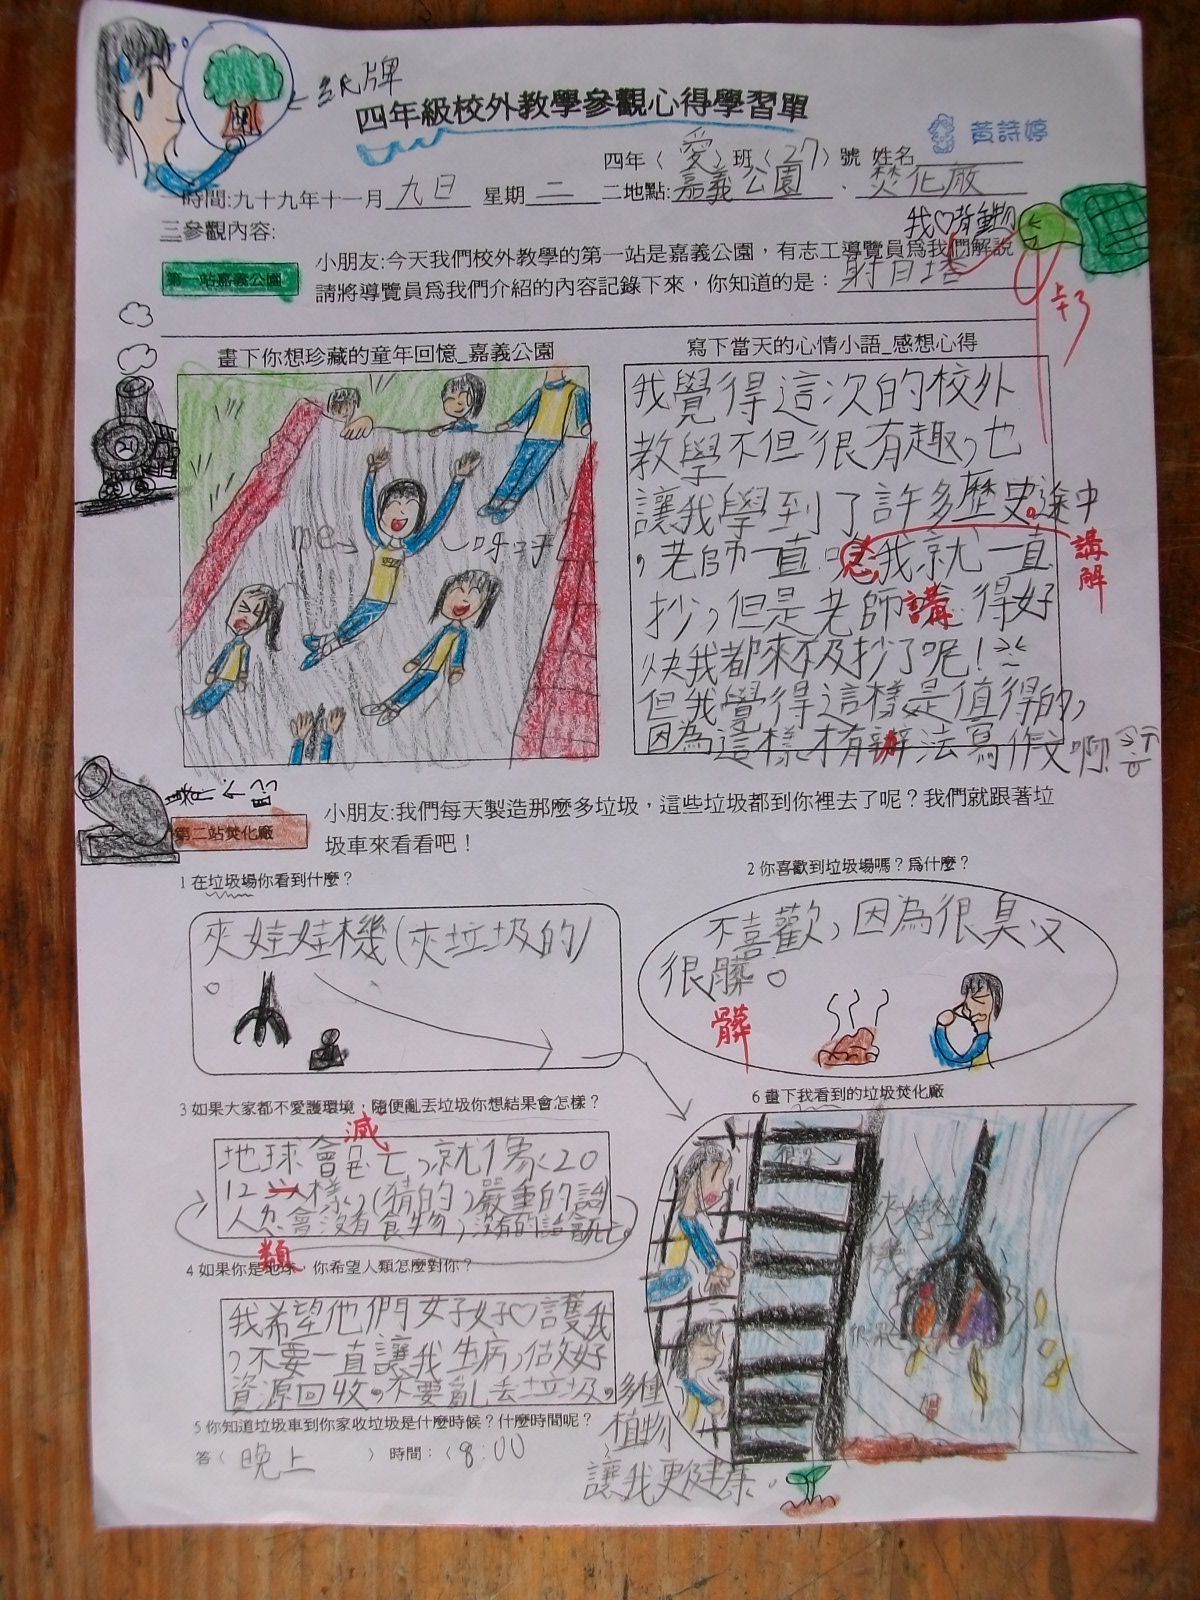 四年級校外教學參觀心得學習單
黃詩婷
四年（愛）班（27）號 姓名
一時間:九十九年十一月九日 星期二 二地點:嘉義公園、焚化廠
三參觀內容:
我♡背
第一站嘉義公園
小朋友:今天我們校外教學的第一站是嘉義公園，有志工導覽員為我們解說
請將導覽員為我們介紹的內容記錄下來，你知道的是：射日塔
畫下你想珍藏的童年回憶_嘉義公園
me
呀呼
寫下當天的心情小語_感想心得
我覺得這次的校外
教學不但很有趣，也
讓我學到了許多歷史。途中
，老師一直 我就一直
講解
抄，但是老師講得好
快我都來不及抄了呢！
但我覺得這樣是值得的，
因為這樣才有辦法寫作文啊！
第二站焚化廠
小朋友:我們每天製造那麼多垃圾，這些垃圾都到你裡去了呢？我們就跟著垃
圾車來看看吧！
1 在垃圾場你看到什麼？
夾娃娃機(夾垃圾的)
。
2 你喜歡到垃圾場嗎？為什麼？
不喜歡，因為很臭又
很髒。
髒
3 如果大家都不愛護環境，隨便亂丟垃圾你想結果會怎樣？
滅
地球會亡，就像20
12一樣，(猜的)嚴重的話
人類會沒有食物，沒有的話會死亡。
4 如果你是地球，你希望人類怎麼對你？
我希望他們好好♡護我
，不要一直讓我生病，做好
資源回收。不要亂丟垃圾。多種
植物
讓我更健康。
5 你知道垃圾車到你家收垃圾是什麼時候？什麼時間呢？
答（晚上）時間：（8:00
6 畫下我看到的垃圾焚化廠
夾娃娃
機